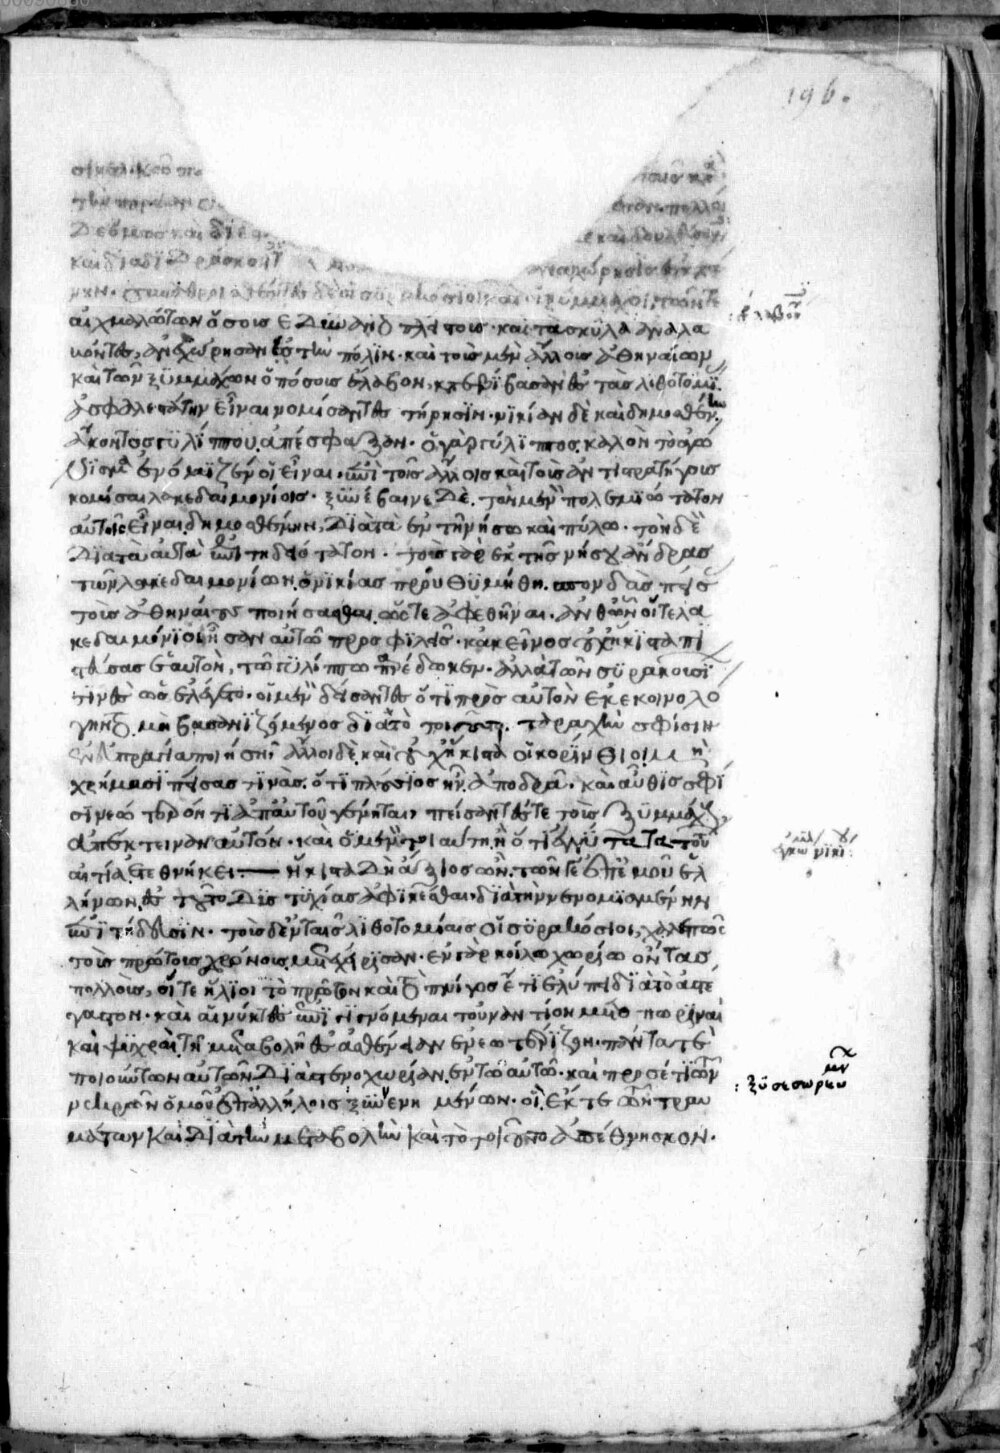 τὴν πορείαν πολλοὶ
δὲ ὅμως καὶ διέφ καὶ δουλεύσαν
καὶ διαδιδράσκοντ ἀναχώρησις ἐς κατά
νην. ξυναθροισθέντες δὲ οἱ συρακόσιοι καὶ οἱ ξύμμαχοι, τῶν τε
αἰχμαλώτων ὅσους ἐδύναντο πλείστους καὶ τὰ σκῦλα ἀναλα
βόντες, ἀνεχώρησαν ἐς τὴν πόλιν. καὶ τοὺς μὲν ἄλλους ἀθηναίων
καὶ τῶν ξυμμάχων ὁπόσους ἔλαβον, κατεβίβασαν ἐς τὰς λιθοτομί
ἀσφαλεστάτην εἶναι νομίσαντες τήρησιν. νικίαν δὲ καὶ δημοσθένην
ἄκοντος γυλίππου ἀπέσφαξαν. ὁ γὰρ γύλιππος καλὸν τὸ ἀγώ
νισμα ἐνόμιζεν οἱ εἶναι. ἐπὶ τοῖς ἄλλοις καὶ τοὺς ἀντιστρατήγους
κομίσαι λακεδαιμονίοις. ξυνέβαινε δὲ τὸν μὲν πολεμιώτατον
αὐτοῖς εἶναι δημοσθένην, διὰ τὰ ἐν τῇ νήσῳ καὶ πύλῳ. τὸν δὲ
διὰ τὰ αὐτὰ ἐπιτηδειότατον. τοὺς γὰρ ἐκ τῆς νήσου ἄνδρας
τῶν λακεδαιμονίων ὁ νικίας προυθυμήθη. σπονδὰς πείσας
τοὺς ἀθηναίους ποιήσασθαι ὥστε ἀφεθῆναι. ἀνθ' ὧν οἵ τε λα
κεδαιμόνιοι ἦσαν αὐτῷ προσφιλεῖς. κἀκεῖνος οὐχ ἥκιστα πι
στεύσας ἑαυτὸν, τῷ γυλίππῳ παρέδωκεν. ἀλλὰ τῶν συρακοσί
τινες ὡς ἐλέγετο. οἱ μὲν δείσαντες ὅτι πρὸς αὐτὸν ἐκεκοινολό
γηντο μὴ βασανιζόμενος διὰ τὸ τοιοῦτο ταραχὴν σφίσιν
ἐν εὐπραγίᾳ ποιήσῃ ἄλλοι δὲ καὶ οὐχ ἥκιστα οἱ κορίνθιοι μὴ
χρήμασι πείσας τινὰς ὅτι πλούσιος ἦν ἀποδρᾷ. καὶ αὖθις σφί
σι νεώτερόν τι ἀπ' αὐτοῦ γένηται, πείσαντές τε τοὺς ξυμμάχους
ἀπέκτειναν αὐτόν. καὶ ὁ μὲν τοιαύτῃ ἢ ὅτι ἐγγύτατα τούτων
αἰτίᾳ ἐτεθνήκει. ἥκιστα δὴ ἄξιος ὢν τῶν γε ἐπ' ἐμοῦ ἑλ
λήνων ἐς τοῦτο δυστυχίας ἀφικέσθαι. διὰ τὴν νενομισμένην
ἐπιτήδευσιν. τοὺς δ' ἐν ταῖς λιθοτομίαις οἱ συρακόσιοι, χαλεπῶς
τοὺς πρώτους χρόνους μετεχείρισαν. ἐν γὰρ κοίλῳ χωρίῳ ὄντας
πολλοὺς, οἵ τε ἥλιοι τὸ πρῶτον καὶ τὸ πνῖγος ἔτι ἐλύπει διὰ τὸ ἀστέ
γαστον. καὶ αἱ νύκτες ἐπιγιγνόμεναι τοὐναντίον μετοπωριναὶ
καὶ ψυχραὶ τῇ μεταβολῇ ἐς ἀσθένειαν ἐνεωτέριζον. πάντα τε
ποιούντων αὐτῶν διὰ στενοχωρίαν ἐν τῷ αὐτῷ. καὶ προσέτι τῶν
νεκρῶν ὁμοῦ ἐπ' ἀλλήλοις ξυννενημένων. οἳ ἔκ τε τῶν τραυ
μάτων καὶ διὰ τὴν μεταβολὴν καὶ τὸ τοιοῦτο ἀπέθνησκον.